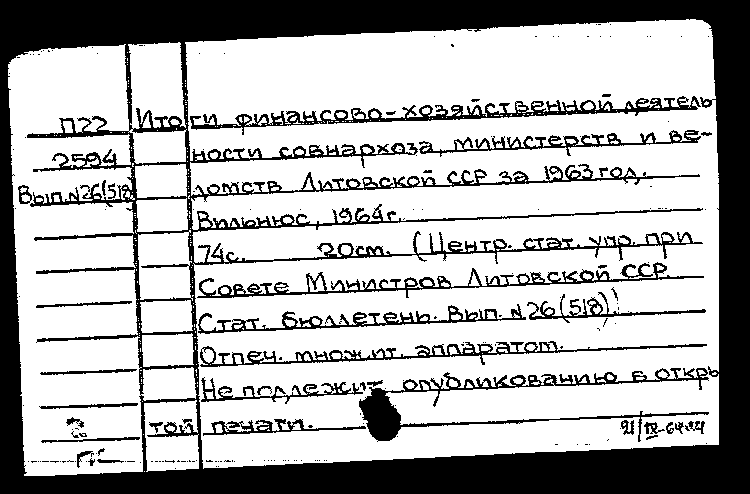 П22 Итоги финансово-хозяйственной деятель
2594 ности совнархоза, министерств и ве-
Вып.№26(518) домств Литовской ССР за 1963 год.
Вильнюс, 1964г.
74с. 20см. (Центр. стат. упр. при
Совете Министров Литовской ССР
Стат. бюллетень. Вып. №26(518))
Отпеч. множит. аппаратом.
Не подлежит опубликованию в откры
той печати.
21/IX-64